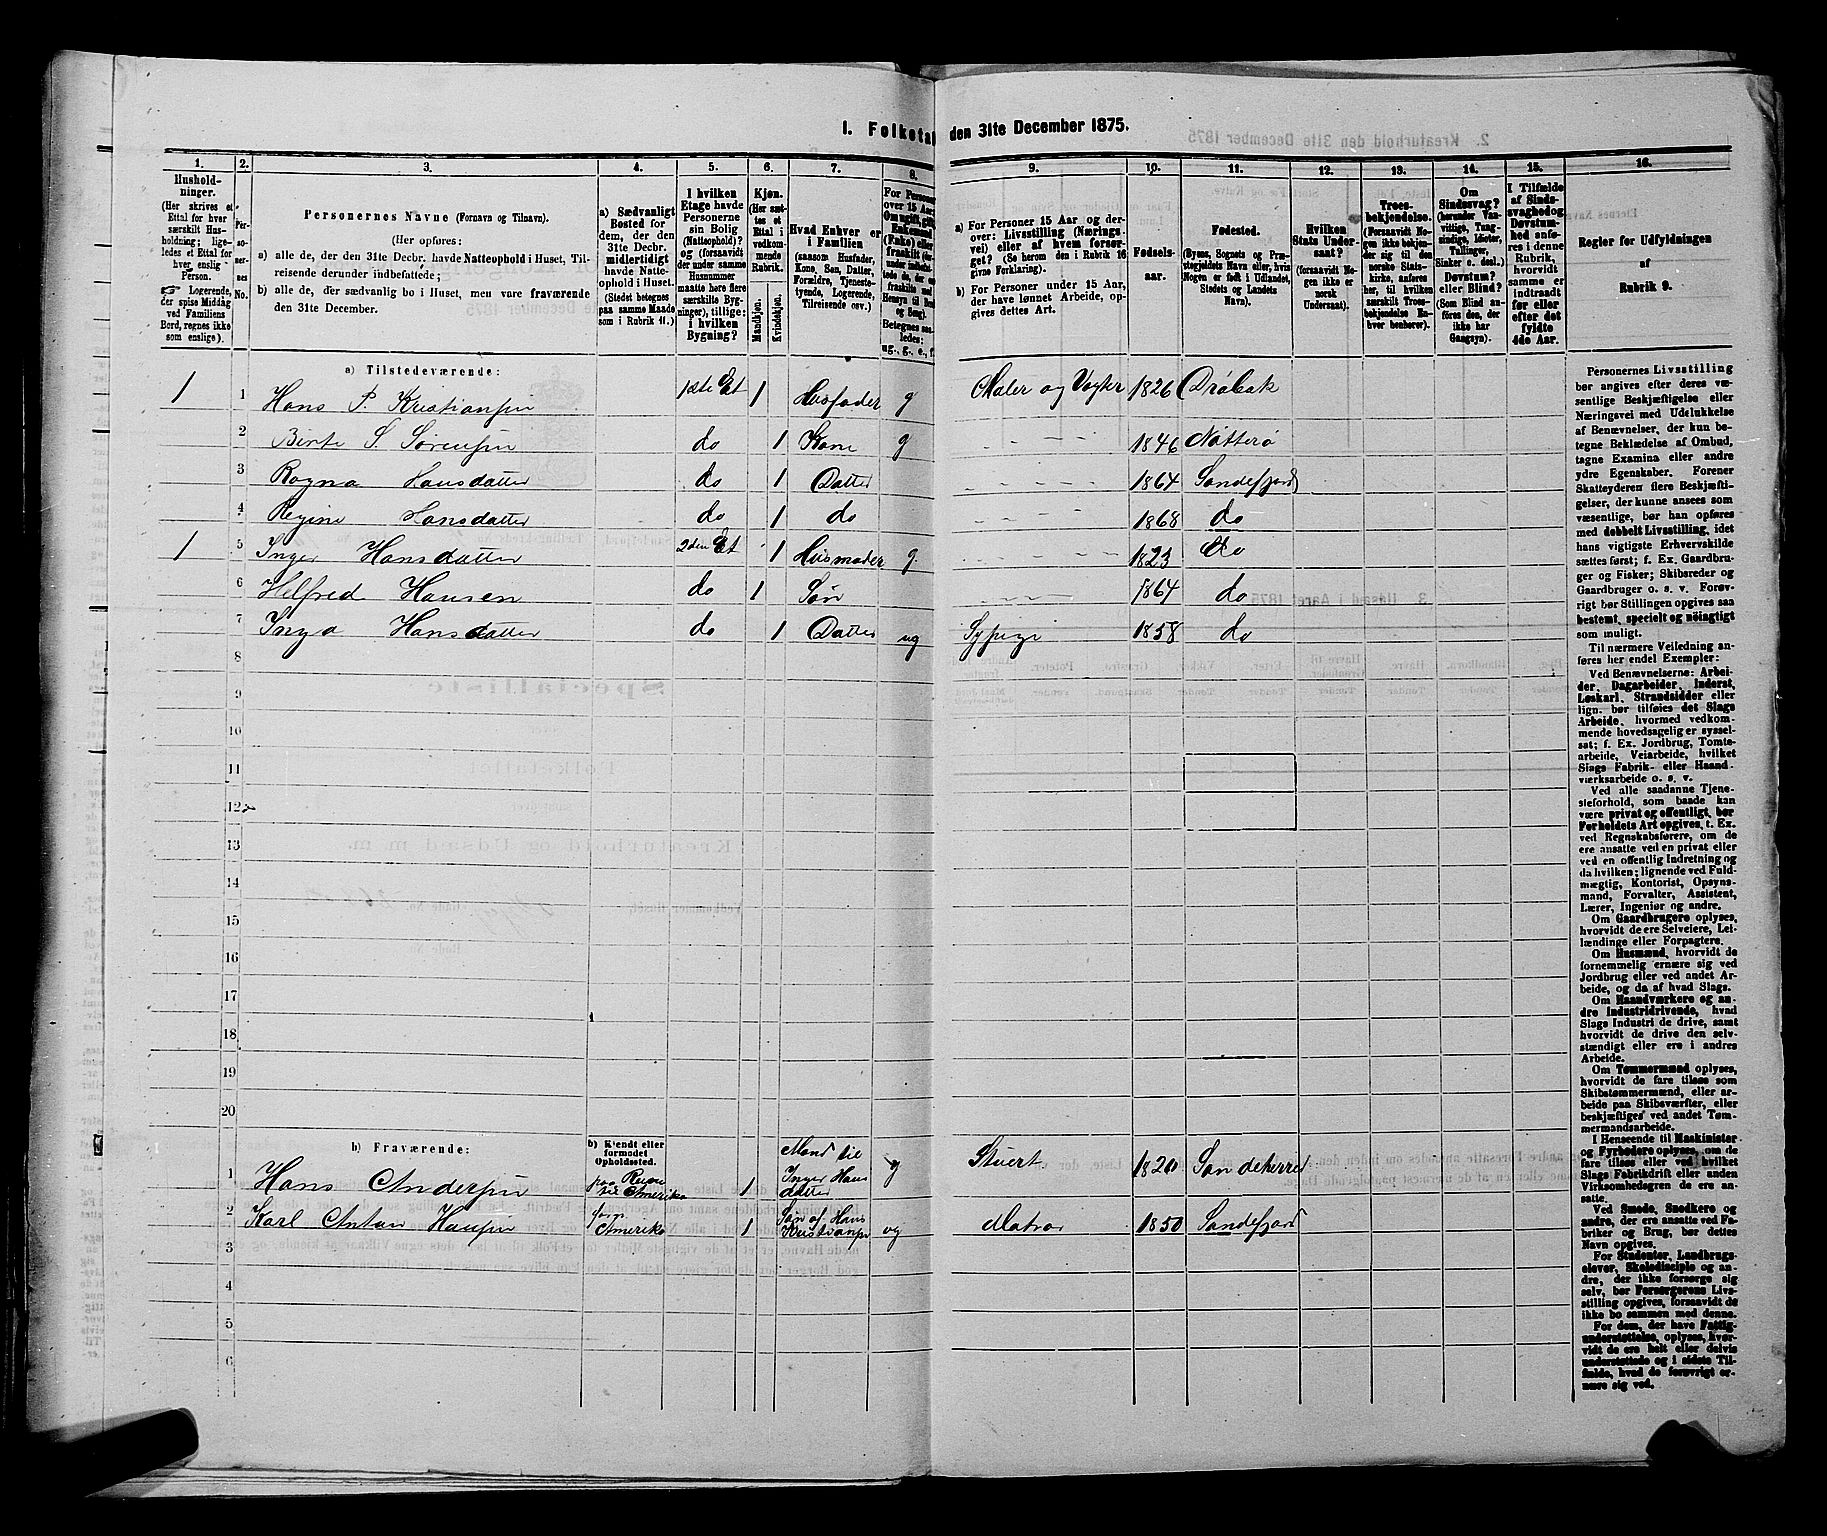 I. Folketal den 31te December 1875.
1. 2. 3. 4. 5. 6. 7. 8. 9. 10. 11. 12. 13. 14. 15. 16.
Hushold-
ninger.
(Her skrives et
Ettal for hver
særskilt Hus-
holdning; lige-
ledes et Ettal for
hver enslig
Person.
☞ Logerende,
der spise Middag
ved Familiens
Bord, regnes ikke
som enslige).
Per-
so-
ner-
nes
No.
Personernes Navne (Fornavn og Tilnavn).
(Her opføres:
a) alle de, der den 31te Decbr. havde Natteophold i Huset, Til-
reisende derunder indbefattede;
b) alle de, der sædvanlig bo i Huset, men vare fraværende
den 31te December.
a) Sædvanligt
Bosted for
dem, der den
31te Decbr.
midlertidigt
havde Natte-
ophold i Huset.
(Stedet betegnes
paa samme Maade
som i Rubrik 11.)
I hvilken
Etage havde
Personerne
sin Bolig
(Natteophold)?
og (forsaavidt
der under samme
Husnummer
maatte høre flere
særskilte Byg-
ninger), tillige:
i hvilken
Bygning?
Kjøn.
(Her sæt-
tes et
Ettal i
vedkom-
mende
Rubrik.
Mandkjøn.
Kvindekjøn.
Hvad Enhver er
i Familien
(saasom Husfader,
Kone, Søn, Datter,
Forældre, Tjeneste-
tyende, Logerende,
Tilreisende osv.)
For Personer
over 15 Aar:
a) For Personer 15 Aar og der-
over: Livsstilling (Nærings-
vei) eller af hvem forsør-
get? (Se herom den i Rubrik 16
givne Forklaring).
b) For Personer under 15 Aar,
der have lønnet Arbeide, op-
gives dettes Art.
Fødsels-
aar.
Fødested.
(Byens, Sognets og Præ-
stegjeldets Navn eller, hvis
Nogen er født i Udlandet,
Stedets og Landets
Navn).
Hvilken
Stats Under-
saat?
(forsaavidt No-
gen ikke er
norsk
Undersaat).
Troes-
bekjendelse.
(Forsaavidt No-
gen ikke bekjen-
der sig til den
norske Stats-
kirke, anføres
her, til hvilken
særskilt Troes-
bekjendelse En-
hver henhører).
Om
Sindssvag?
(herunder Van-
vittige, Tung-
sindige, Idioter,
Tullinger,
Sinker o. desl.)
Døvstum?
eller Blind?
(Som Blind an-
føres den, der
ikke har
Gangsyn).
I Tilfælde
af Sinds-
svaghed og
Døvstum-
hed anfø-
res i denne
Rubrik,
hvorvidt
samme er
indtraadt
før eller
efter det
fyldte
4de Aar.
Regler for Udfyldningen
af
Rubrik 9.
a) Tilstedeværende:
1 1 Hans P. Kristiansen 1ste Et 1 Husfader g Maler og Vogter 1826 Drøbak
2 Birte S. Sørensen do 1 Kone g - - - 1846 Nøtterø
3 Ragna Hansdatter do 1 Datter - - - 1864 Sandefjord
4 Regine Hansdatter do 1 do - - - 1868 do
1 5 Inger Hansdatter 2den Et 1 Husmoder g - - - 1823 do
6 Helfred Hansen do 1 Søn - - - 1864 do
7 Inga Hansdatter do 1 Datter ug Sypige 1858 do
8
9
10
11
12
13
14
15
16
17
18
19
20
b) Fraværende:
b) Kjendt eller
formodet
Opholdssted.
1 Hans Andersen paa Reise til Amerika 1 Mand til Inger Hansdatter g Stuert 1820 Sandeherred
2 Karl Anton Hansen Amerika 1 Søn af Hans Kristiansen ug Matros 1850 Sandefjord
3
4
5
6
Personernes Livsstilling
bør angives efter deres væ-
sentlige Beskjæftigelse eller
Næringsvei med Udelukkelse
af Benævnelser, der kun be-
tegne Beklædelse af Ombud,
tagne Examina eller andre
ydre Egenskaber. Forener
Skatteyderen flere Beskjæfti-
gelser, der kunne ansees som
væsentlige, bør han opføres
med dobbelt Livsstilling, idet
hans vigtigste Erhvervskilde
sættes først; f. Ex. Gaardbru-
ger og Fisker; Skibsreder og
Gaardbruger o. s. v. Forøv-
rigt bør Stillingen opgives saa
bestemt, specielt og nøiagtigt
som muligt.
Til nærmere Veiledning an-
føres her endel Exempler:
Ved Benævnelserne: Arbei-
der, Dagarbeider, Inderst,
Løskarl, Strandsidder eller
lign. bør tilføies det Slags
Arbeide, hvormed vedkom-
mende hovedsagelig er syssel-
sat; f. Ex. Jordbrug, Tomte-
arbeide, Veiarbeide, hvilket
Slags Fabrik- eller Haand-
værksarbeide o. s. v.
Ved alle saadanne Tjene-
steforhold, som baade kan
være privat og offentligt, bør
Forholdets Art opgives, t. Ex.
ved Regnskabsførere, om de
ere ansatte ved en privat eller
ved en offentlig Indretning og
da hvilken; lignende ved Fuld-
mægtig, Kontorist, Opsyns-
mand, Forvalter, Assistent,
Lærer, Ingeniør og andre.
Om Gaardbrugere oplyses,
hvorvidt de ere Selveiere, Lei-
lændinge eller Forpagtere.
Om Husmænd, hvorvidt de
fornemmelig ernære sig ved
Jordbrug eller ved andet Ar-
beide, og da af hvad Slags.
Om Haandværkere og an-
dre Industridrivende, hvad
Slags Industri de drive, samt
hvorvidt de drive den selv-
stændigt eller ere i andres
Arbeide.
Om Tømmermænd oplyses,
hvorvidt de fare tilsøs som
Skibstømmermænd, eller ar-
beide paa Skibsværfter, eller
beskjæftiges ved andet Tøm-
mermandsarbeide.
I Henseende til Maskinister
og Fyrbødere oplyses, om de
fare tilsøs eller ved hvilket
Slags Fabrikdrift eller anden
Virksomhedsgren de ere an-
satte.
Ved Smede, Snedkere og
andre, der ere ansatte ved Fa-
briker og Brug, bør dettes
Navn opgives.
For Studenter, Landbrugs-
elever, Skoledisciple og an-
dre, der ikke forsørge sig
selv, bør Forsørgerens Livs-
stilling opgives, forsaavidt de
ikke bo sammen med denne.
For dem, der have Fattig-
understøttelse, oplyses, hvor-
vidt de ere helt eller delvis
understøttede og i sidste Til-
fælde, hvad de forøvrigt er-
nære sig ved.